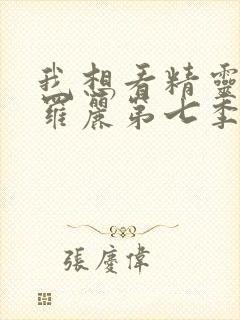 我想看精靈
羅麗第七季
張慶偉